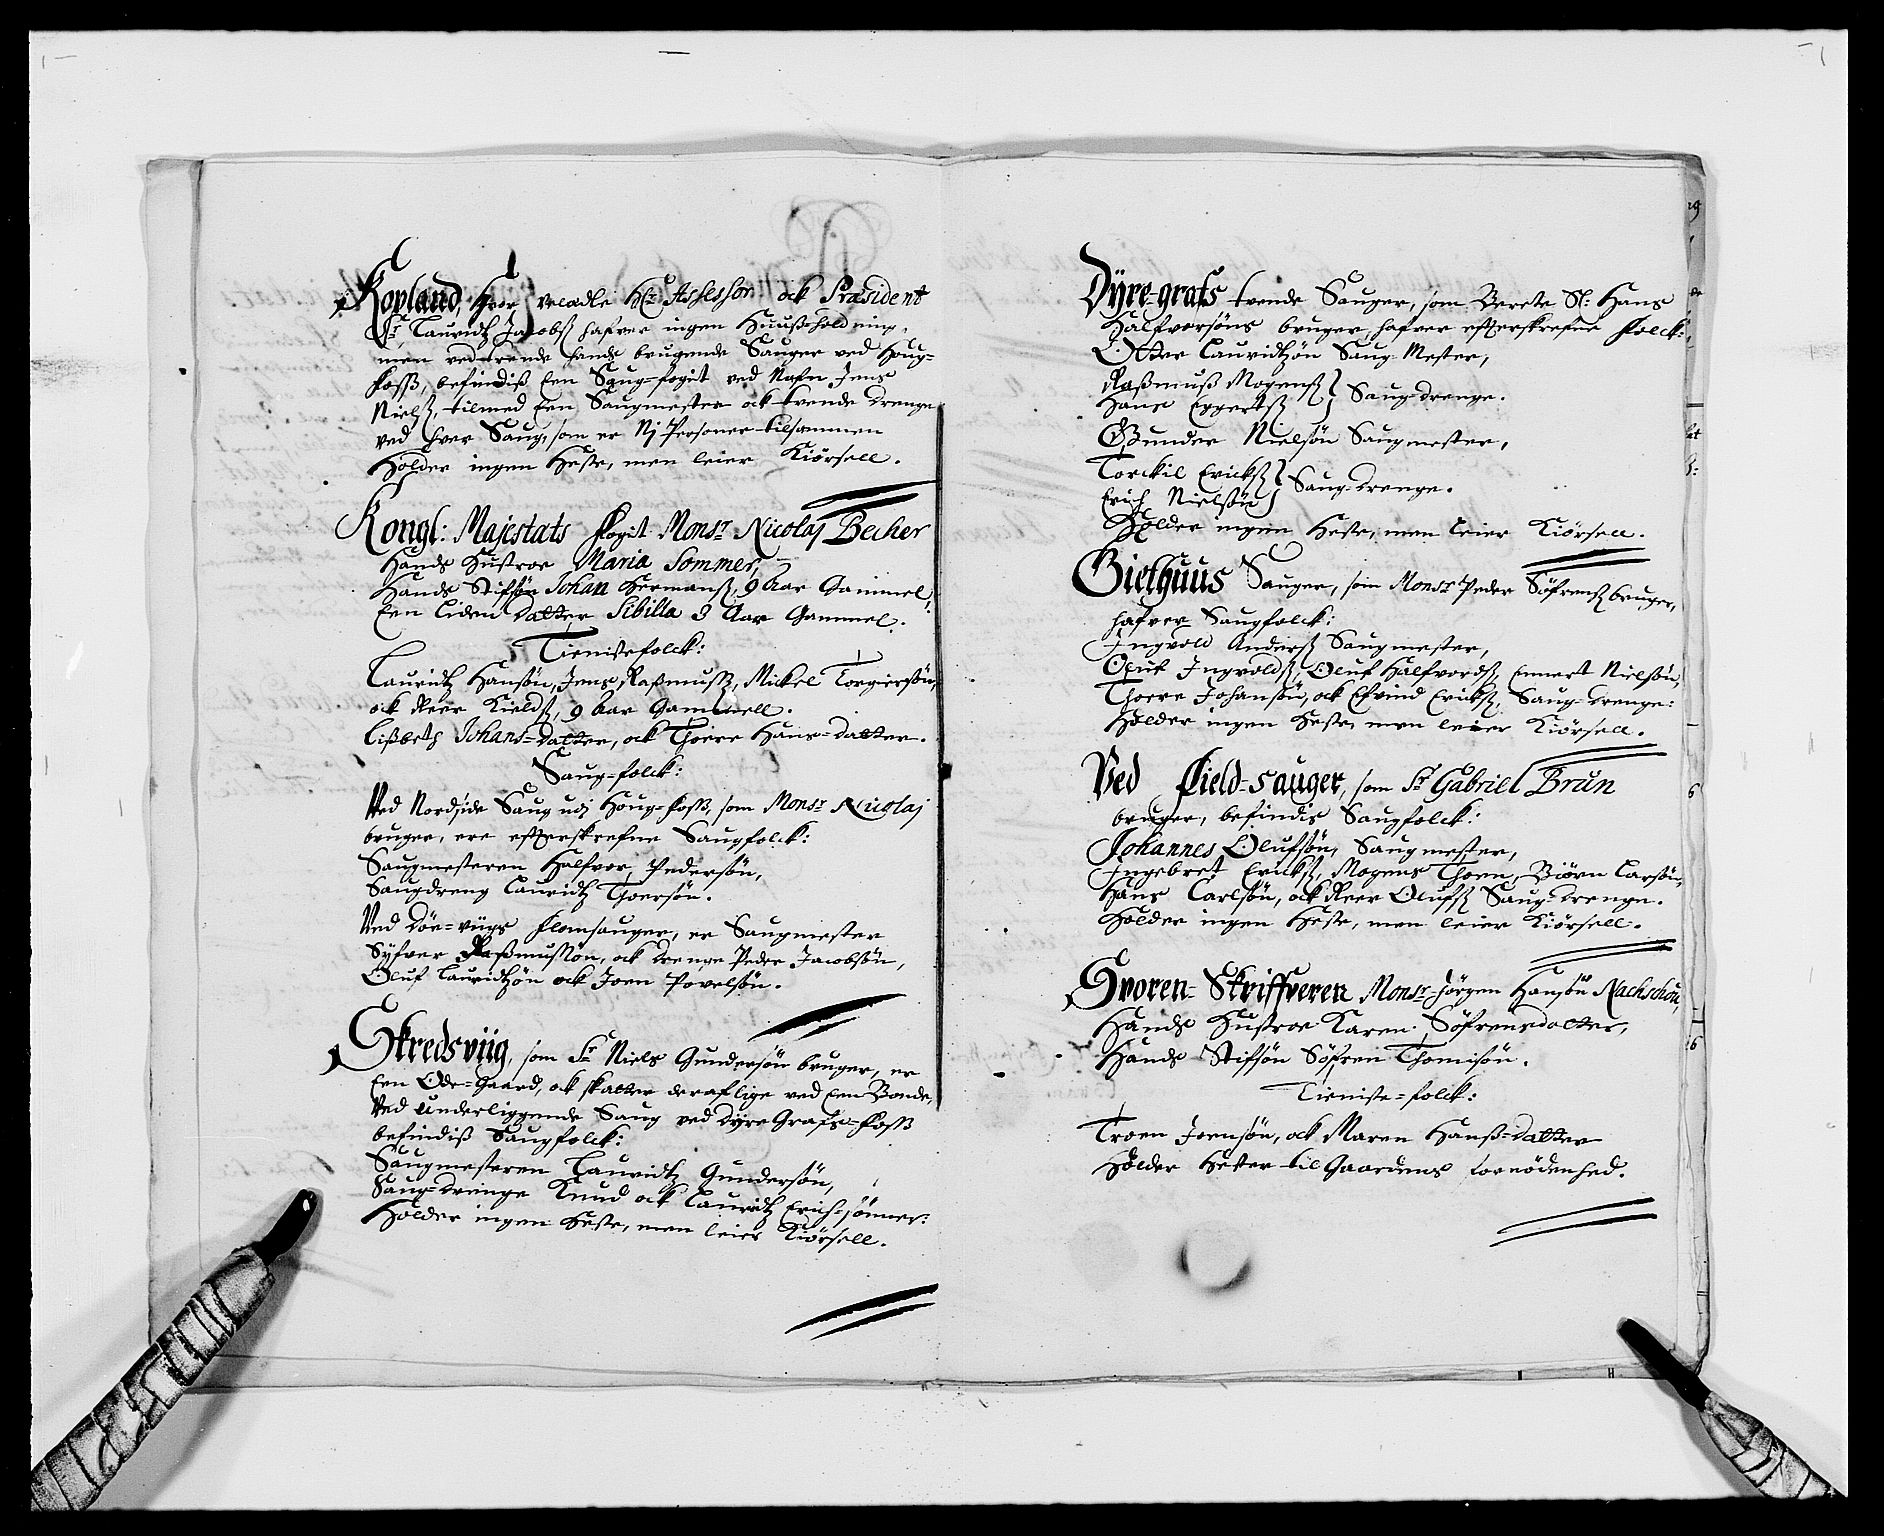 Kopland, Hvor veladle Hr: Assessor ock Præsident
Sr. Lauridtz Jacobß hafver ingen Huuß-holdning,
men vedværende hands brugende Sauger ved Houg-
foss, befindiß Een Saug-fogit ved Nafn Jens
Nielß, tilmed Een Saugmester ock tvende drenge
ved hver Saug, som er Nj Personer tilsammen
Holder ingen Heste, men leier Kiörsell.
Kongl: Majestats Fogit Monsr Nicolaj Becher
Hands Hustroe Maria Sommer,
Hands Stifsön Johan Hermanß, 9 Aar Gammel,
Een Liden datter Sibilla 3 Aar Gammel.
Tienistefolck:
Lauridtz Hansön, Jens Raßmusß, Mickel Torgiersön,
ock Peer Kieldß, 9 Aar Gammell.
Lißbeth Johans-datter, ock Thore Hans-datter.
Saug-folck:
Ved Nordside Saug udj Houg-foss, som Monsr Nicolaj
bruger, ere efterskrefne Saugfolck:
Saugmesteren Halfvor Pedersön,
Saugdreng Lauridtz Thorsön.
Ved Döe-viigs Flomsauger, er Saugmester
Syfver Raßmussön, ock drenge Peder Jacobsön,
Oluf Lauridtzön ock Joen Povelsön.
Skredsviig, som Sr Niels Gundersön bruger, er
Een Öde-Gaard, ock skatter deraf lige ved Een Bonde,
Ved underliggende Saug ved Dyre Grafs-foss
befindiß Saugfolck:
Saugmesteren Lauridtz Gundersön,
Saug-drenge Knud ock Lauridtz Erich-sönner.
Holder ingen Heste, men leier Kiörsell.
Dyre-grafs tvende Sauger, som Berete Sl: Hans
Halfvorsöns bruger, hafver efterskrefne folck:
Otter Lauridtzön Saug-Mester,
Raßmuß Mogenß
Hans Eggertß } Saug-drenge.
Gunder Nielsön Saugmester,
Torckil Erickß
Erich Nielsön } Saug-drenge.
Holder ingen Heste, men leier Kiörsell.
Gielhuus Sauger, som Monsr Peder Söfrenß bruger,
hafver Saugfolck:
Ingvold Anderß Saugmester,
Oluf Ingvoldß, Oluf Halfvordß, Emmert Nielsön,
Thore Johansön, ock Efvind Erickß, Saug-drenge:
Holder ingen Heste, men leier Kiörsell.
Ved Field-sauger, som Sr Gabriel Brun
bruger, befindis Saugfolck:
Johannes Olufsön, Saugmester,
Ingebret Erickß, Mogens Thoen, Biörn Larsön,
Hans Carlsön, ock Peer Olufß Saug-drenge.
Holder ingen Heste, men leier Kiörsell.
Svoren-Skriffveren Monsr Jörgen Hansön Nachschou,
Hands Hustroe Karen Söfrensdatter,
Hands Stifsön Söfren Thomisön.
Tieniste-folck:
Troen Joensön, ock Maren Hanß-datter
Holder Hester til Gaardens fornödenhed.